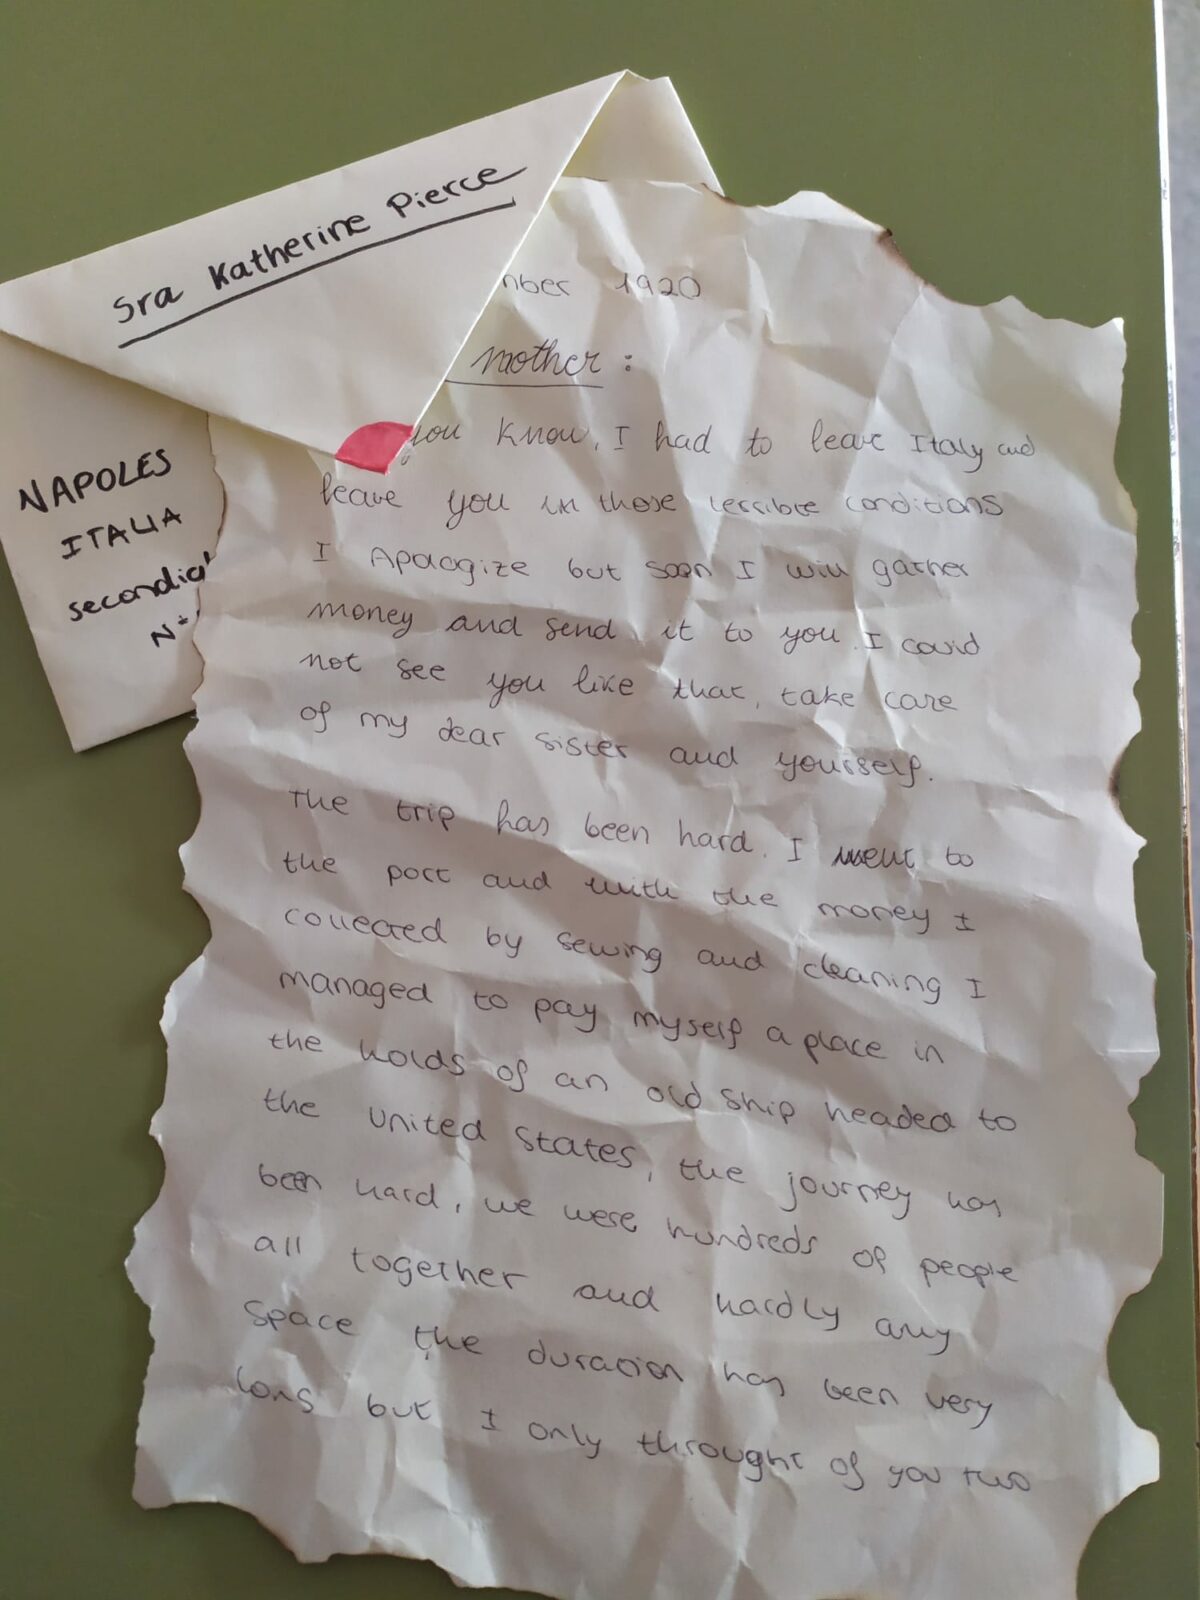 Sra Katherine Pierce
NAPOLES
ITALIA
N=
1920
mother :
you know, I had to leave Italy and
leave you in those terrible conditions
I Apologize but soon I will gather
money and send it to you. I could
not see you like that, take care
of my dear sister and yourself.
the trip has been hard. I went to
the port and with the money I
collected by sewing and cleaning I
managed to pay myself a place in
the holds of an old ship headed to
the United States, the journey has
been hard, we were hundreds of people
all together and hardly any
space the duration has been very
long but I only throught of you two